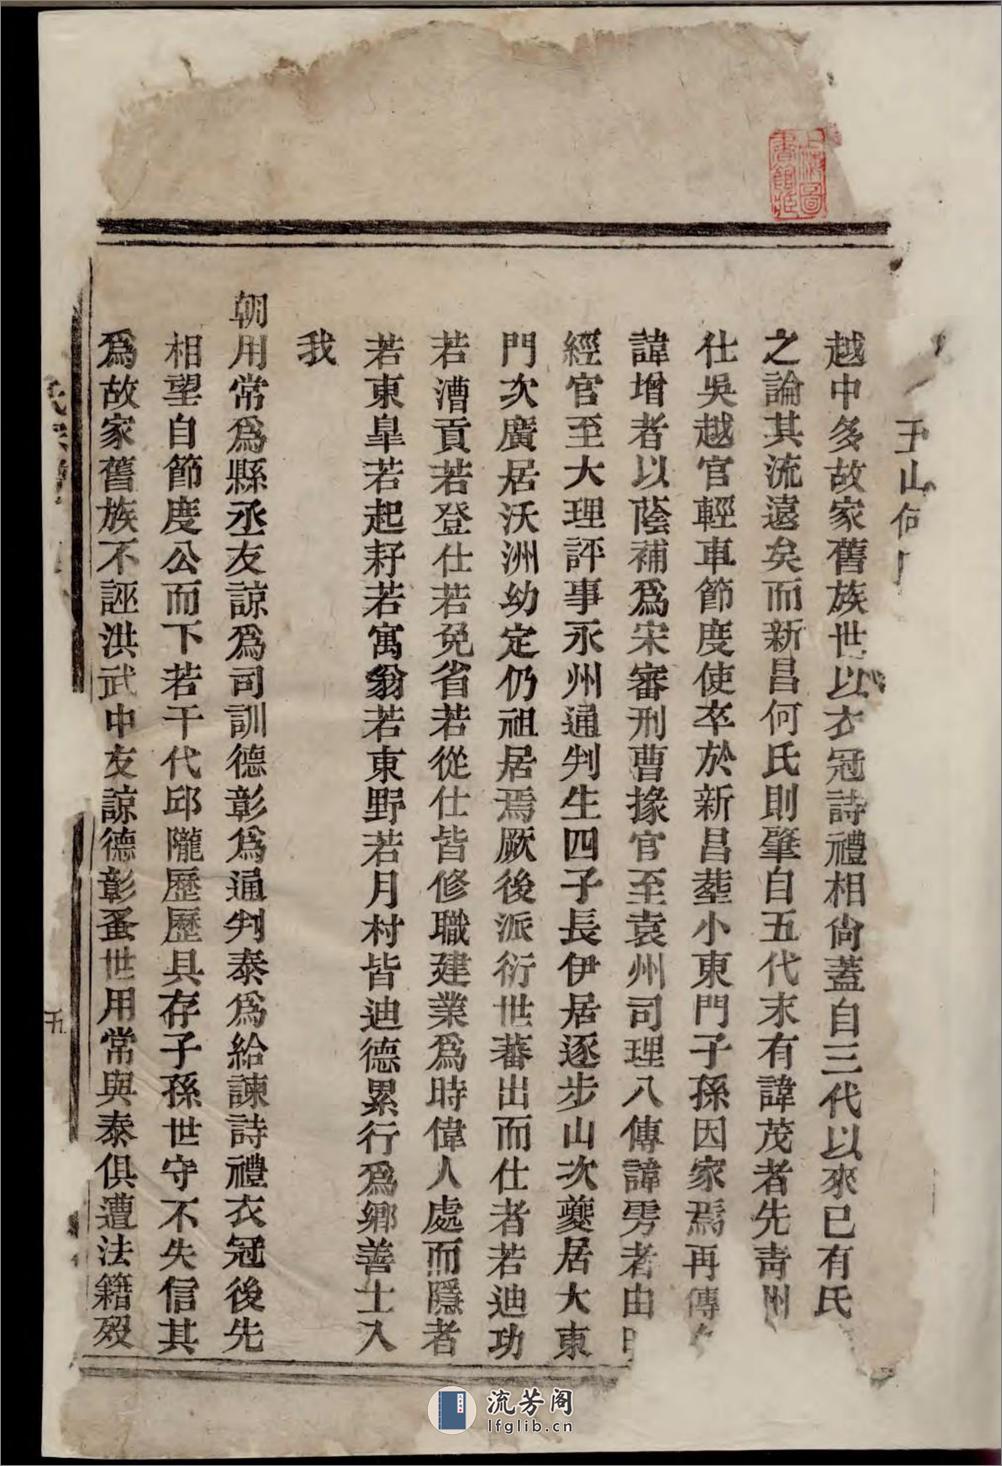 玉山何
越中多故家舊族世以衣冠詩禮相尙蓋自三代以來已有氏
之論其流遠矣而新昌何氏則肇自五代末有諱茂者先靑州
仕吳越官輕車節度使卒於新昌塟小東門子孫因家焉再傳
諱增者以蔭補爲宋審刑曹掾官至袁州司理八傳諱雱者由
經官至大理評事永州通判生四子長伊居逐步山次夔居大東
門次廣居沃洲幼定仍祖居焉厥後派衍世蕃出而仕者若迪功
若漕貢若登仕若免省若從仕皆修職建業爲時偉人處而隱者
若東臯若起耔若寓翁若東野若月村皆迪德累行爲鄉善士入
我
朝用常爲縣丞友諒爲司訓德彰爲通判泰爲給諫詩禮衣冠後先
相望自節度公而下若干代邱隴歷歷具存子孫世守不失信其
爲故家舊族不誣洪武中友諒德彰蚤世用常與泰俱遭法籍歿
氏宗譜
五
上海圖書館藏
流芳阁
lfglib.cn